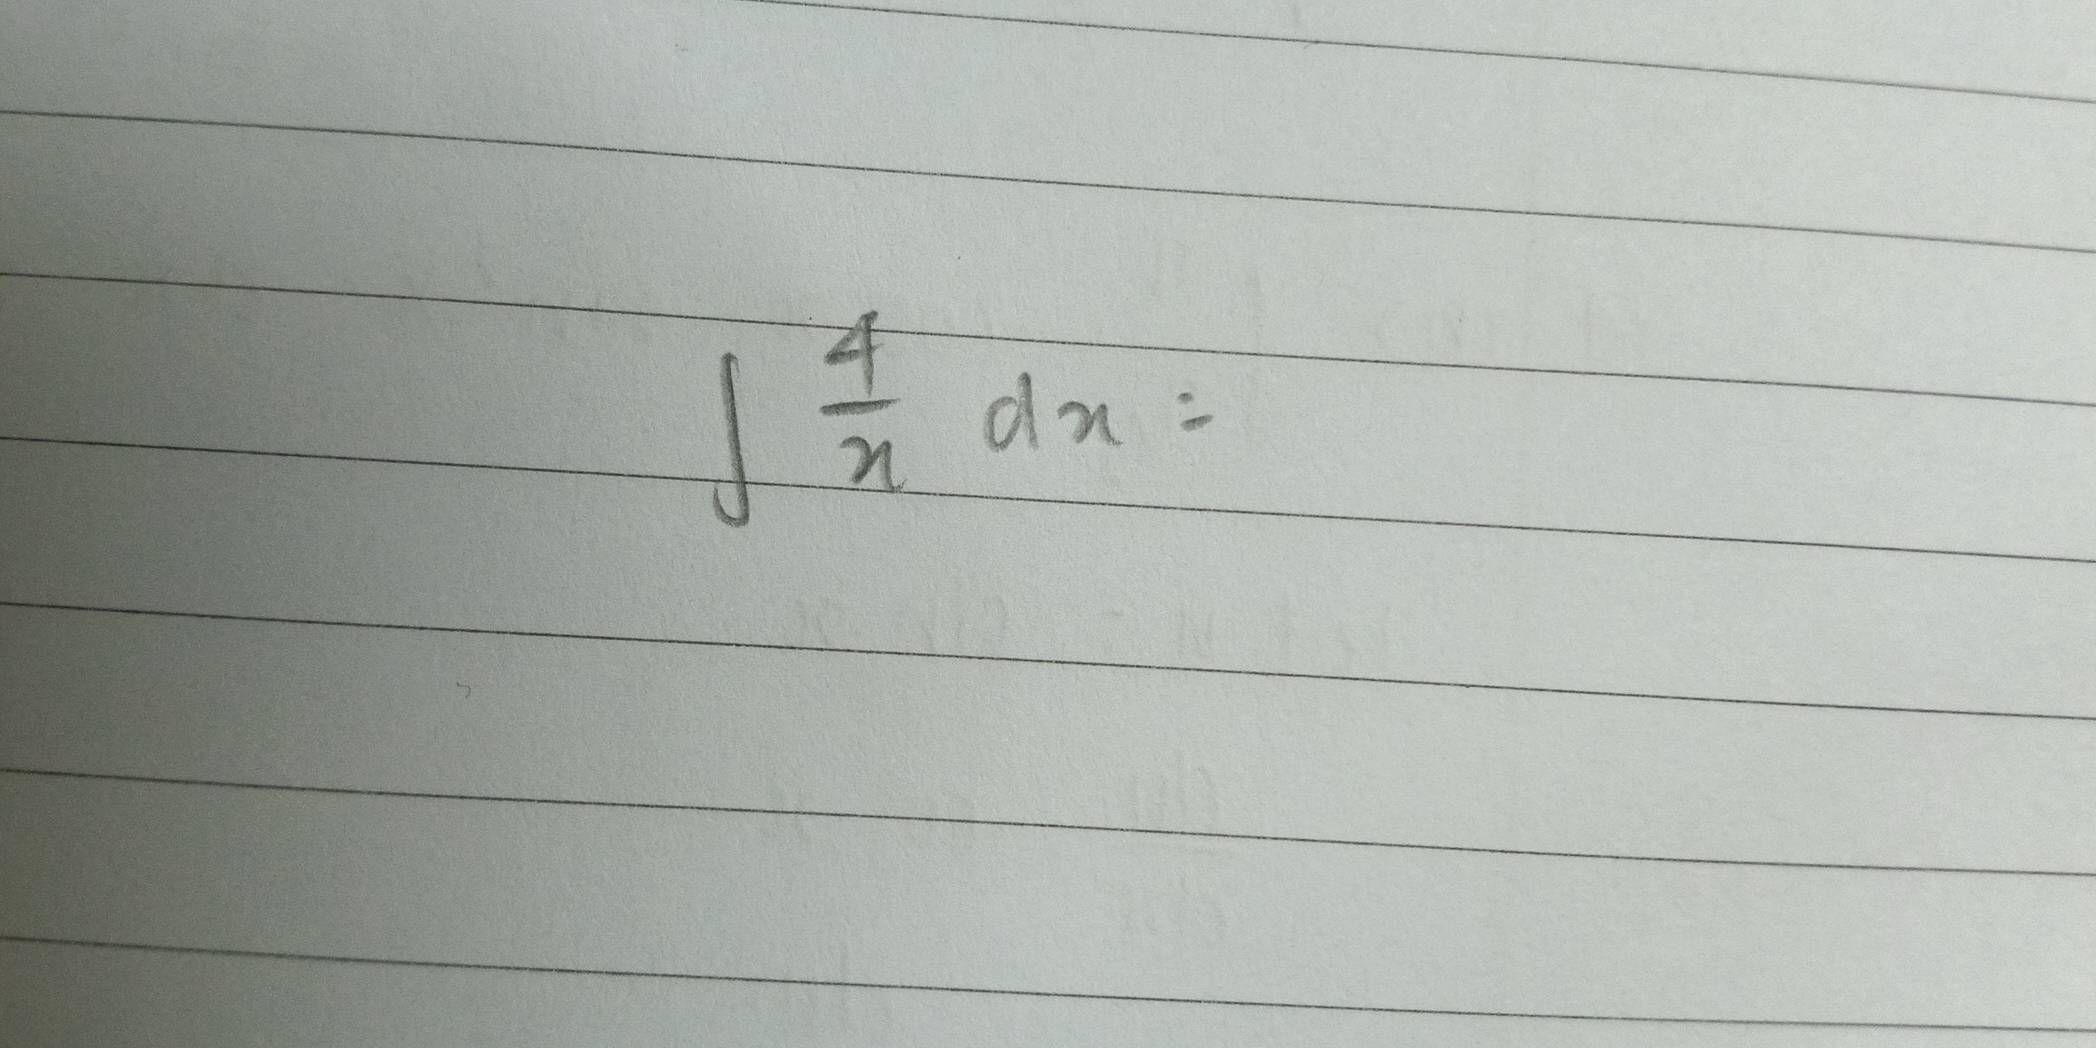 ∫ 4/x dx =